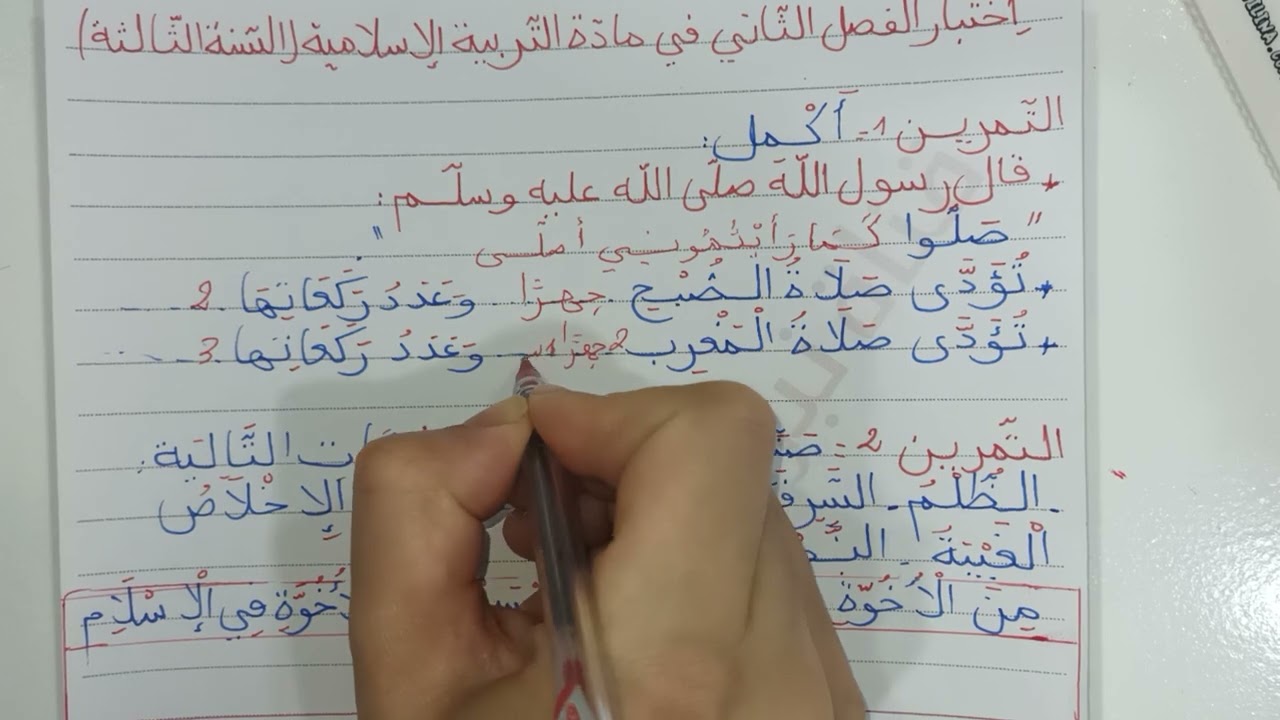 إختبار الفصل الثّاني في مادّة التّربية الإسلامية (السّنة الثّالثة)
التّمرين 1- أَكْمل:
* قال رسول اللّه صلّى اللّه عليه وسلّم:
" صَلُّوا كَمَا رَأَيْتُمُونِي أصلّي "
* تُؤَدَّى صَلَاةُ الصُّبْحِ جهرًا وَعَدَدُ رَكَعَاتِهَا 2
* تُؤَدَّى صَلَاةُ الْمَغْرِب 2 جهرًا 1 وَعَدَدُ رَكَعَاتِهَا 3
التّمرين 2- التَّالِيَة:
- الظُّلْمُ - الإِخْلَاصُ
الْغَيْبَةُ -
مِنَ الْأُخُوَّةِ الْأُخُوَّةِ فِي الْإِسْلَامِ